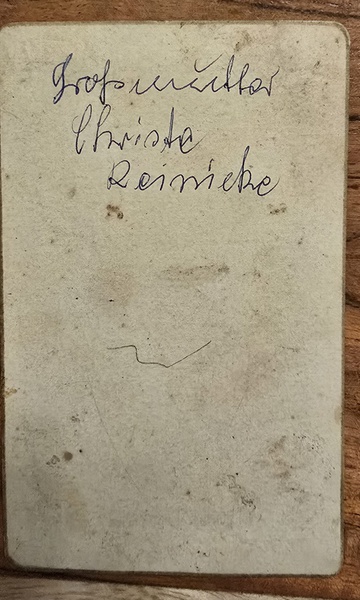 Großmutter
Christe
Reinicke